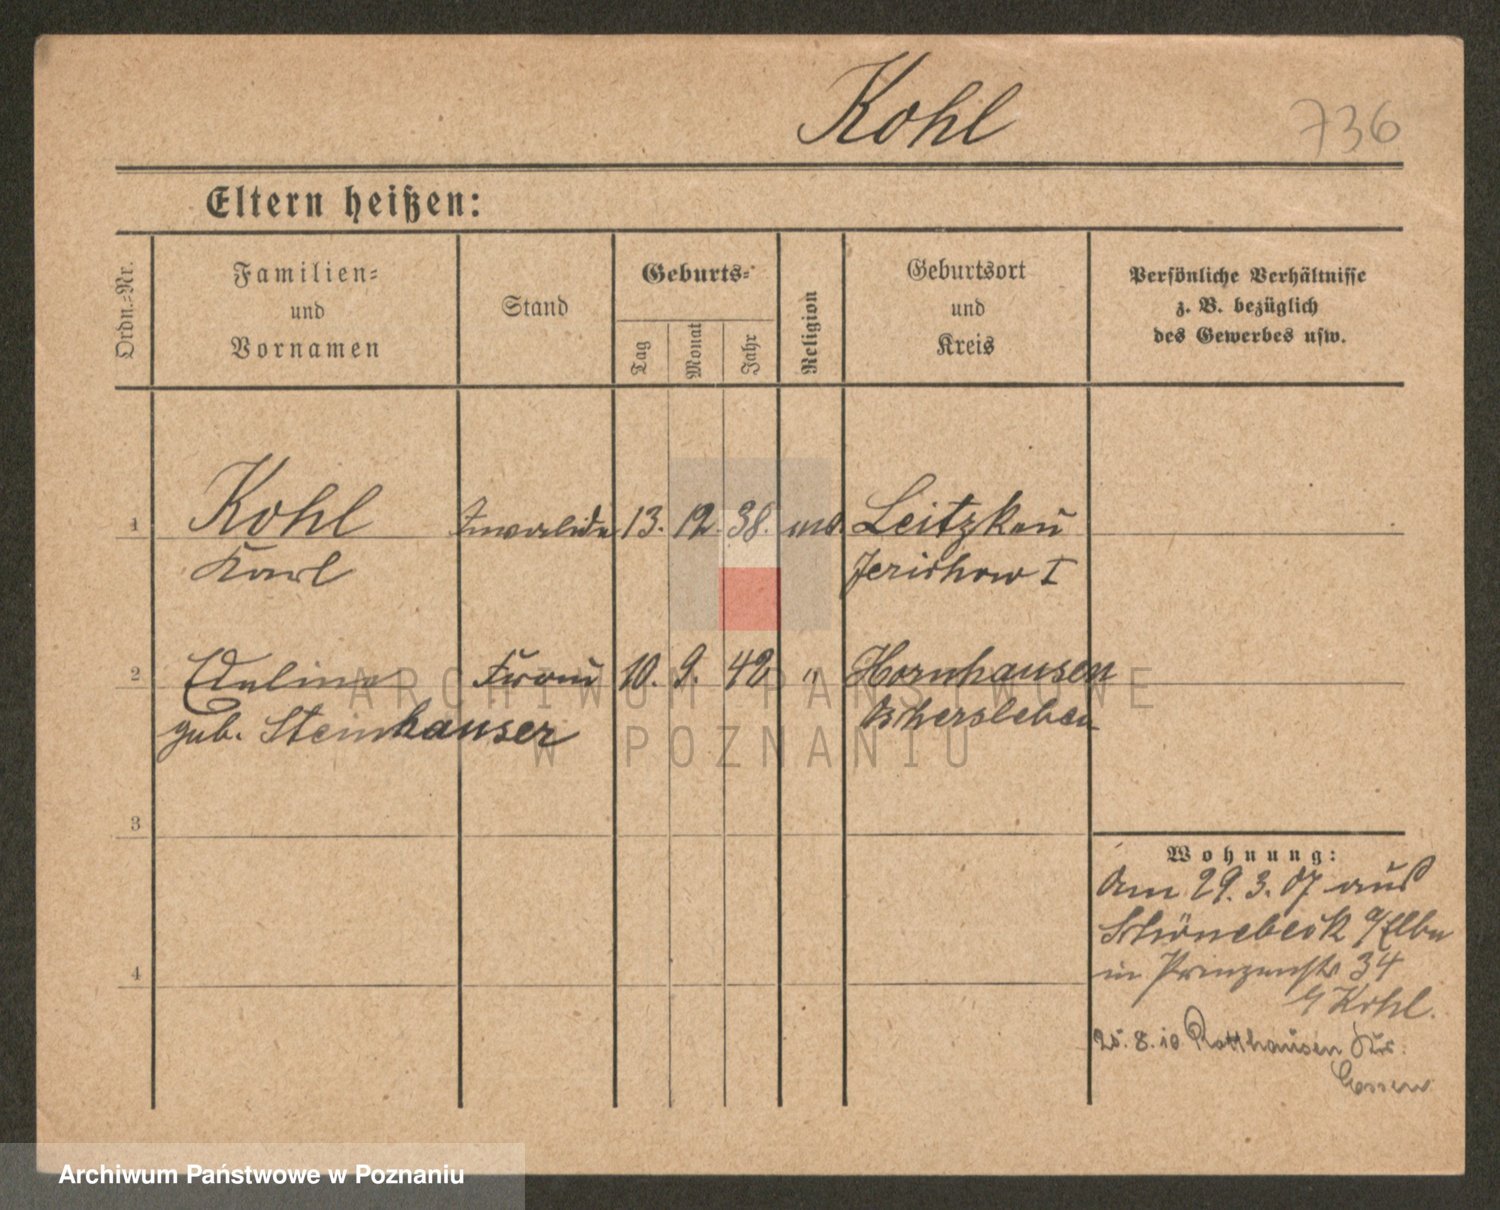 Kohl
736
Eltern heißen:
Ordn.-Nr.
Familien-
und
Vornamen
Stand
Geburts-
Tag
Monat
Jahr
Religion
Geburtsort
und
Kreis
Persönliche Verhältnisse
z. B. bezüglich
des Gewerbes usw.
1 Kohl Invalide 13. 12. 38. Leitzkau
Karl Jerichow I
2 Frau 10. 9. 42 " Hornhausen
geb. Steinhauser Oschersleben
3
4
Wohnung:
Am 29.3.07 aus
Schönebeck a/Elbe
in Prinzenstr 34
Kohl.
25.8.10 Rotthausen Kr.
Essen
ARCHIWUM PAŃSTWOWE
W POZNANIU
Archiwum Państwowe w Poznaniu